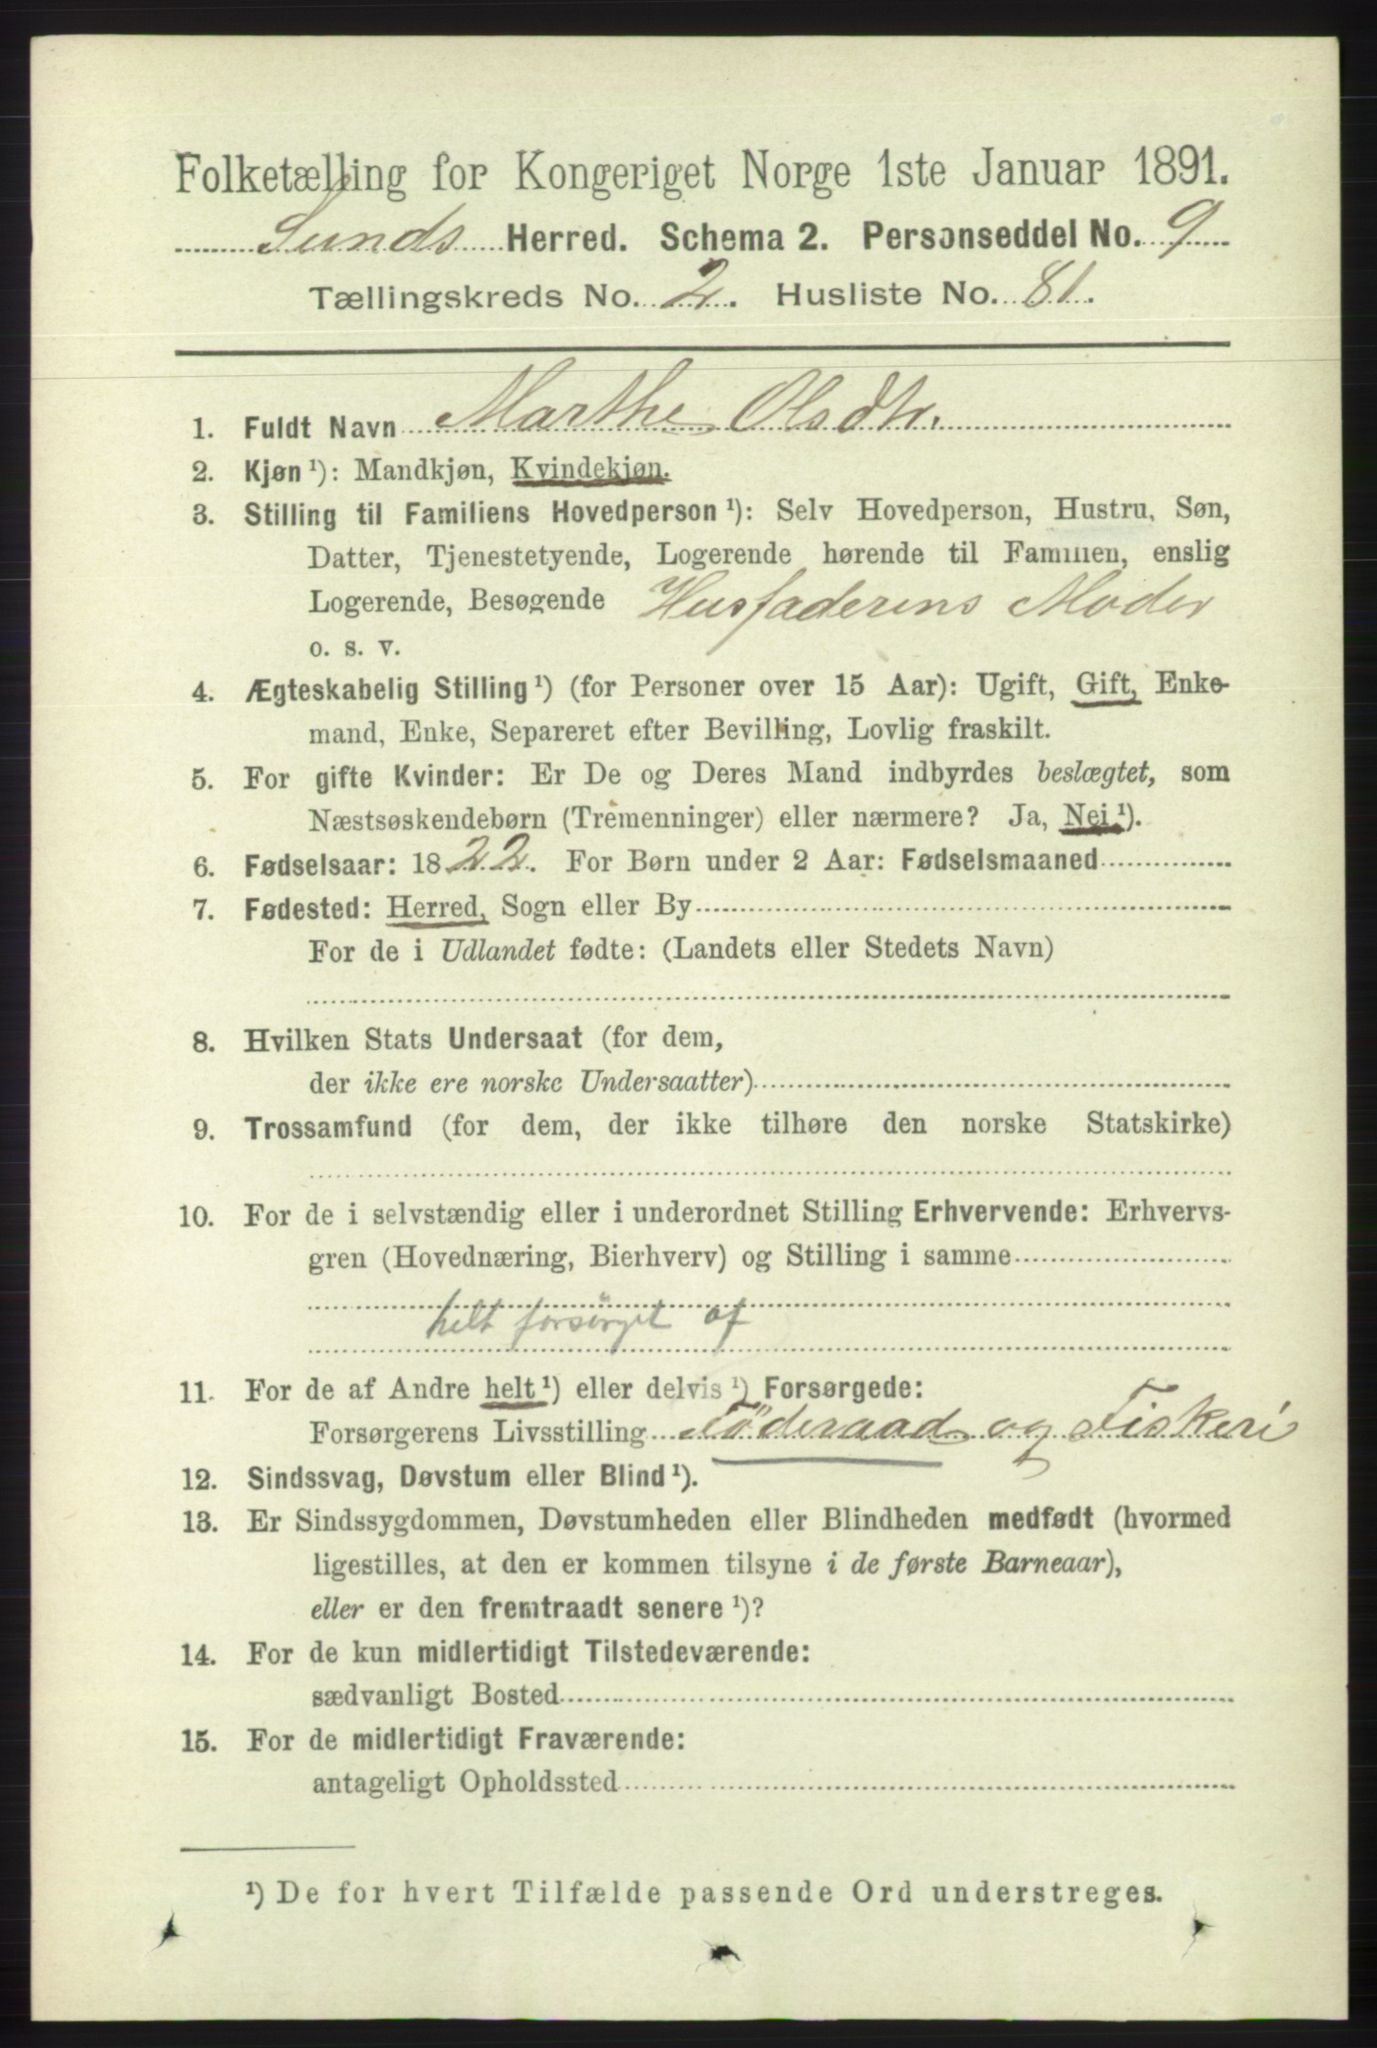 Folketælling for Kongeriget Norge 1ste Januar 1891.
Sunds Herred. Schema 2. Personseddel No. 9
Tællingskreds No. 2. Husliste No. 81.
1. Fuldt Navn Marthe Olsdtr.
2. Kjøn¹): Mandkjøn, Kvindekjøn.
3. Stilling til Familiens Hovedperson¹): Selv Hovedperson, Hustru, Søn,
Datter, Tjenestetyende, Logerende hørende til Familien, enslig
Logerende, Besøgende Husfaderens Moder
o. s. v.
4. Ægteskabelig Stilling¹) (for Personer over 15 Aar): Ugift, Gift, Enke-
mand, Enke, Separeret efter Bevilling, Lovlig fraskilt.
5. For gifte Kvinder: Er De og Deres Mand indbyrdes beslægtet, som
Næstsøskendebørn (Tremenninger) eller nærmere? Ja, Nei¹).
6. Fødselsaar: 1822. For Børn under 2 Aar: Fødselsmaaned
7. Fødested: Herred, Sogn eller By
For de i Udlandet fødte: (Landets eller Stedets Navn)
8. Hvilken Stats Undersaat (for dem,
der ikke ere norske Undersaatter)
9. Trossamfund (for dem, der ikke tilhøre den norske Statskirke)
10. For de i selvstændig eller i underordnet Stilling Erhvervende: Erhvervs-
gren (Hovednæring, Bierhverv) og Stilling i samme
helt forsørget af
11. For de af Andre helt¹) eller delvis¹) Forsørgede:
Forsørgerens Livsstilling Föderaad og Fiskeri
12. Sindssvag, Døvstum eller Blind¹).
13. Er Sindssygdommen, Døvstumheden eller Blindheden medfødt (hvormed
ligestilles, at den er kommen tilsyne i de første Barneaar),
eller er den fremtraadt senere¹)?
14. For de kun midlertidigt Tilstedeværende:
sædvanligt Bosted
15. For de midlertidigt Fraværende:
antageligt Opholdssted
¹) De for hvert Tilfælde passende Ord understreges.